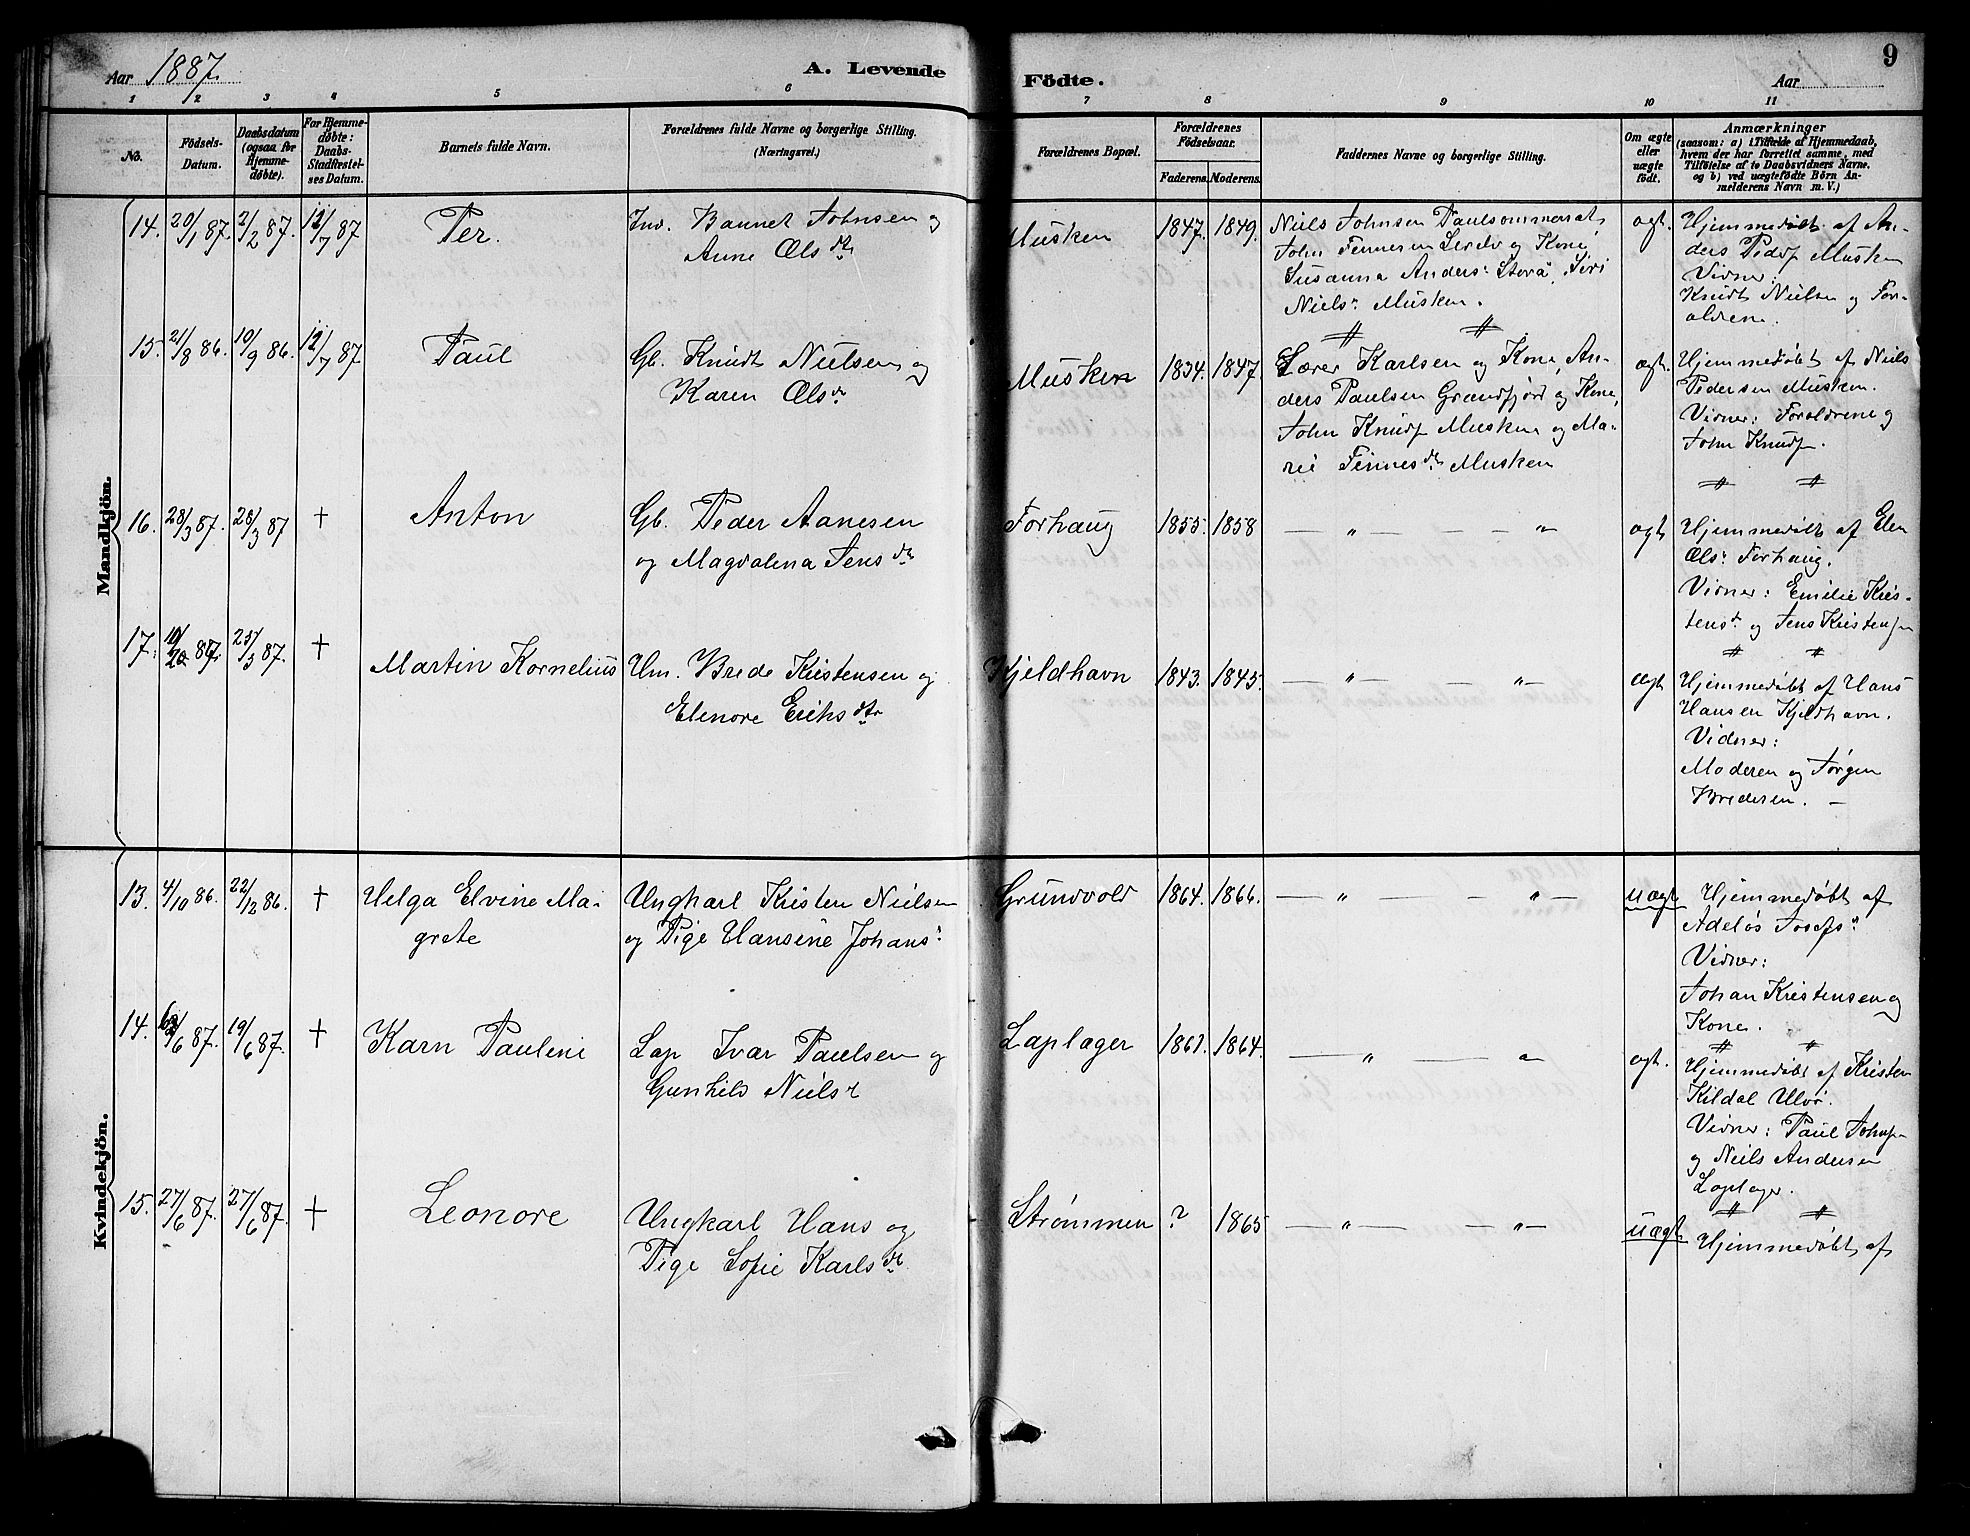 Aar 1887.
A. Levende Födte.
Aar
9
1 2 3 4 5 6 7 8 9 10 11
No.
Födsels-Datum.
Daabsdatum (ogsaa for Hjemmedøbte).
For Hjemmedøbte: Daabs-Stadfæstelses Datum.
Barnets fulde Navn.
Forældrenes fulde Navne og borgerlige Stilling.
(Næringsvei.)
Forældrenes Bopæl.
Forældrenes Födselsaar.
Faderens. Moderens.
Faddernes Navne og borgerlige Stilling.
Om ægte eller uægte födt.
Anmærkninger
(saasom: a) i Tilfælde af Hjemmedaab,
hvem der har forrettet samme, med
Tilföielse af to Daabsvidners Navne.
og b) ved uægtefödte Börn An-
melderens Navn m. V.)
Mandkjön.
14. 20/1 87. 2/2 87. 12/7 87
Per.
Inv. Bannet Johnsen og
Anne Ols dtr
Musken
1847. 1849.
Niels Johnsen
John Fennesen og Kone,
Susanna Anders: Storå, Siri
Niels: Musken.
ægt.
Hjemmedøbt af An-
ders Peders Musken
Vidner:
Knudt Nielsen og For-
ældrene.
15. 21/8 86. 10/9 86. 12/7 87
Paul
Gb. Knudt Nielsen og
Karen Ols dr
Musken
1834. 1847.
Lærer Karlsen og Kone, An-
ders Paulsen Grandfjord og Kone,
John Knuds Musken og Ma-
rie Finnes dtr Musken
ægt.
Hjemmedøbt af Niels
Pedersen Musken.
Vidner: Forældrene og
John Knuds.
16. 28/3 87. 28/3 87 +
Anton
Gb. Peder Aanesen
og Magdalena Jens dtr
Forhaug
1855. 1858
— " — — — "
ægt
Hjemmedøbt af Elen
Ols: Forhaug.
Vidner: Emilie Kris-
tens dr og Jens Kristens
17. 87. 25/3 87. +
Martin Kornelius
Um. Brede Kristensen og
Elenore Eriks dtr
Kjeldhavn
1843. 1845.
— " — — " —
Ægt
Hjemmedøbt af Hans
Hansen Kjeldhavn.
Vidner:
Moderen og Jørgen
Bredesen. —
Kvindekjön.
13. 4/10 86. 22/12 86. +
Helga Elvine Ma-
grete
Ungkarl Kristen Nielsen
og Pige Hansine Johans:
Grundvold
1864. 1866.
— " — — " —
uægt
Hjemmedøbt af
Adeløs Josefs:
Vidner:
Johan Kristensen og
Kone.
14. 87. 19/6 87. +
Karn Pauline
Lap Ivar Paulsen og
Gunhild Niels r
Laplager
1861. 1864.
— " — "
ægt.
Hjemmedøbt af Kristen
Kildal Ulvø.
Vidner: Paul Johns
og Niels Andersen
Laplager.
15. 27/6 87. 27/6 87. +
Leonore
Ungkarl Hans og
Pige Sofie Karls dr
Strømmen
? 1865
— " — — " —
uægt
Hjemmedøbt af